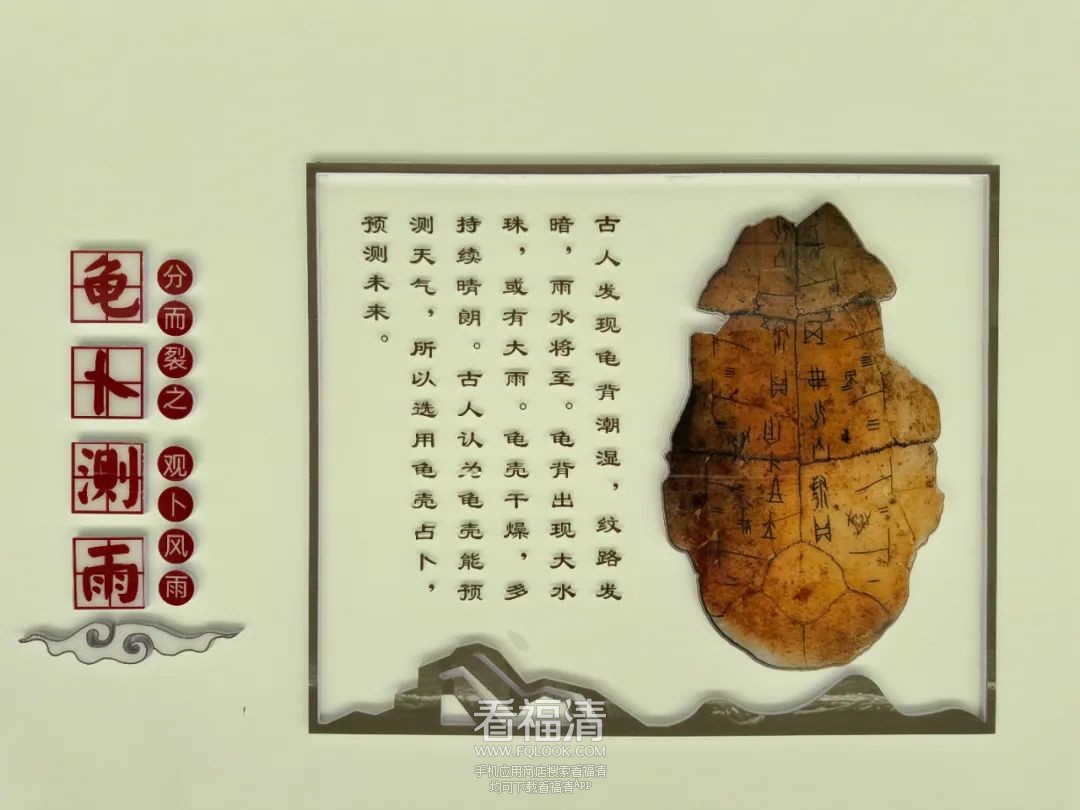 龟卜测雨
分而裂之
观卜风雨
古人发现龟背潮湿，纹路发
暗，雨水将至。龟背出现大水
珠，或有大雨。龟壳干燥，多
持续晴朗。古人认为龟壳能预
测天气，所以选用龟壳占卜，
预测未来。
看福清
WWW.FQLOOK.COM
手机应用商店搜索看福清
均可下载看福清App